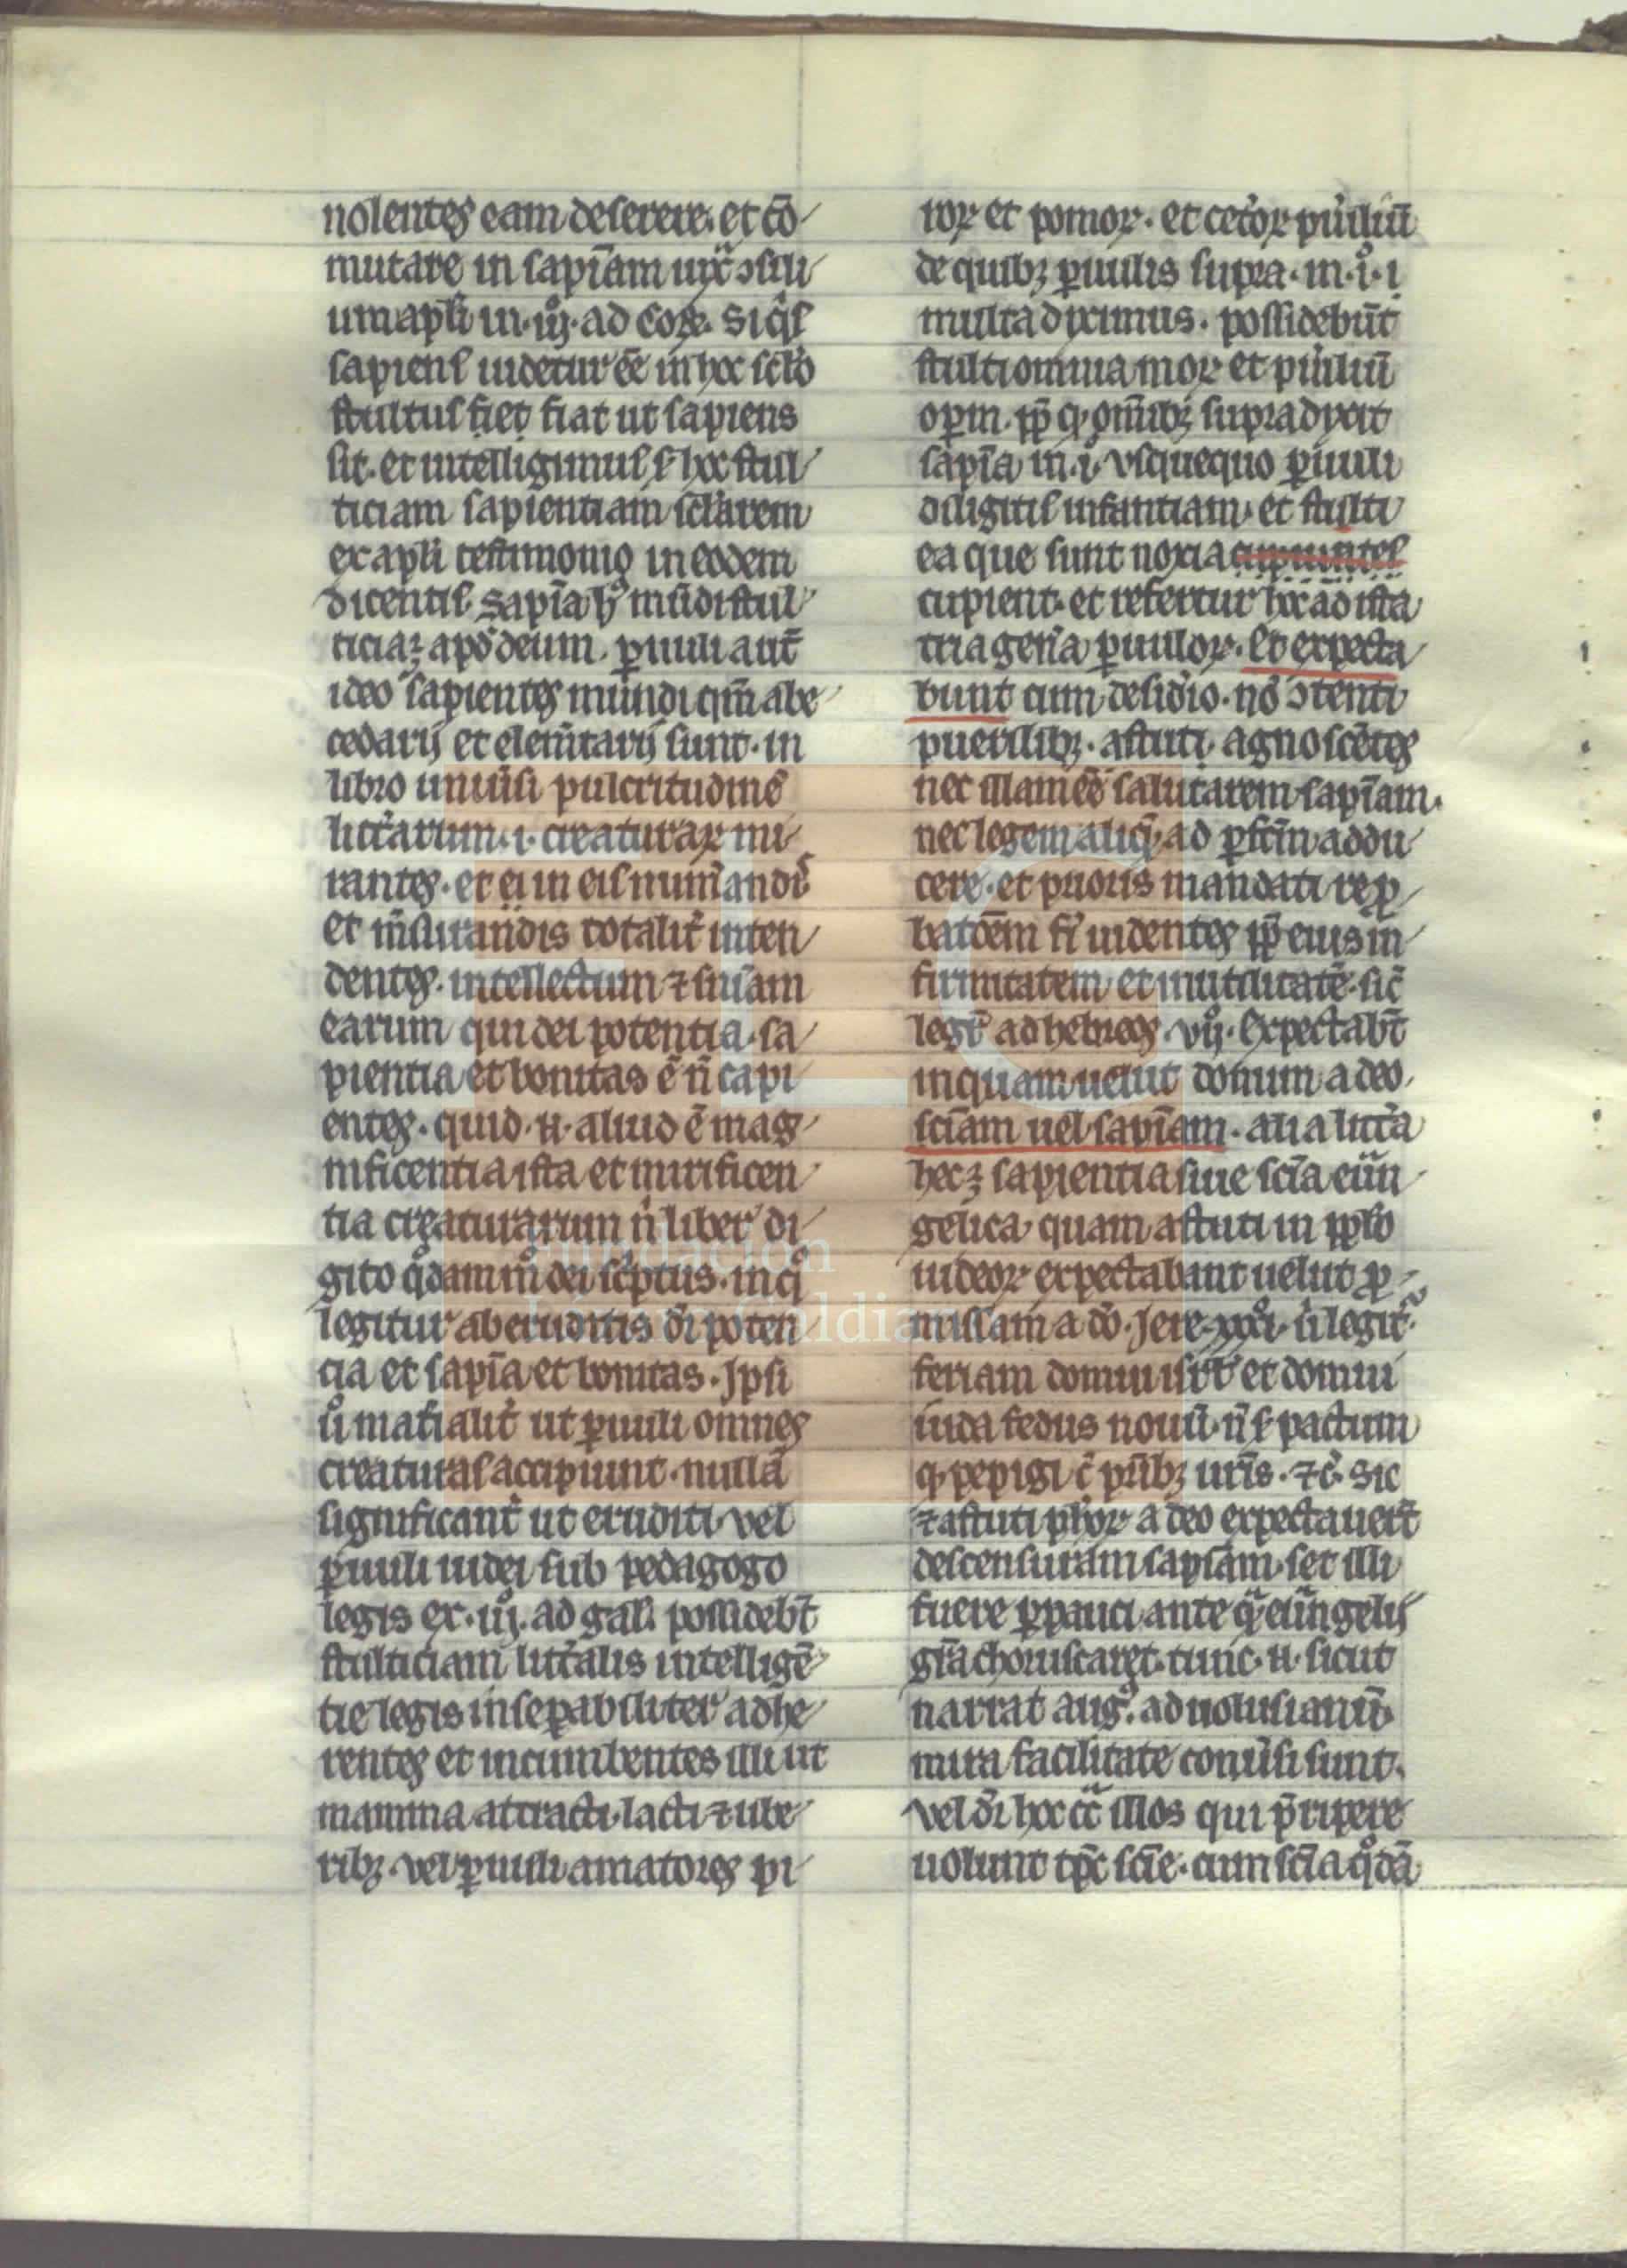 nolentes eam deserere. et cō
mutare in sapīam iux̄ ↄsili
um apl̄i in .iij. ad Coꝝ. Si q̇s
sapiens uidetur ēē in hoc sclo
stultus fiet fiat ut sapiens
sit. et intelligimus hoc stul
ticiam sapientiam scl̄arem
ex apl̄i testimonio in eodem
dicentis. Sapīa hͦ mūdi stul
ticia ꝫ apd̓ deum. ꝑuuli aut̄
ideo sapientes mundi qm̄ abe
cedarij et elem̄tarij sunt. in
libro uniūsi pulcritudinē
litt̓arum .i. creaturaꝝ mi
rantes. et ei in eis num̓andis
et m̄surandis totalit̓ inten
dentes. intellectum ⁊ suīam
earum qui dei potentia. sa
pientia et bonitas ē n̄ capi
entes. quid .n. aliud ē mag
nificentia ista et mirificen
tia creaturarum n̄ liber di
gito qͦdammͦ dei sc̓ptus. in qͦ
legitur ab eruditis d̄i poten
cia et sapīa et bonitas. Ipsi
uͦ mat̓ialit̓ ut ꝑuuli omnes
creaturas accipiunt. nullā
significant̓ ut eruditi. vel
ꝑuuli iudei sub pedagogo
legis ex .iij. ad gal̓. possidebt̄
stulticiam litt̓alis intelligē
tie legis inseꝑabiliter adhe
rentes et incumbentes illi ut
mamma attracti. lacti ⁊ ube
ribꝫ. vel ꝑuuli amatores pi
roꝝ et pomoꝝ. et cet̓oꝝ pu̓iliū
de quibꝫ ꝑuulis supra. in .iͦ. i
multa diximus. possidebūt
stulti omnia moꝝ et pu̓iliū
oꝑm. ꝓpt̓ qͣ omībꝫ supra dixit
sapīa in .i. vsquequo ꝑuuli
diligitis infantiam. et stulti
ea que sunt noxia cupiuntes
cupient. et refertur hoc ad ista
tria gen̓a ꝑuuloꝝ. Et expecta
bunt cum desid̓io. nō ↄtenti
puerilibꝫ. astuti. agnoscētes
nec illam ēē salutarem sapīam.
nec legem aliqͥd ad ꝑfc̄m addu
cere. et prioris mandati reꝓ
batōem fi̓ uidentes ꝓpt̓ eius in
firmitatem et inutilitatē. sic̄
legit̓ ad hebreos .vij. Expectabt̄
inquam uelut donum a deo.
sciam uel sapīam. alia litt̓a
hec ꝫ sapientia siue scīa euā
gelica quam astuti in ꝓpl̄o
iudeoꝝ expectabant uelut ꝓ
missam a dō. Jere. xxxi. ubi legit̓
feriam domui isrl̄ et domui
iuda fedus nouū. n̄ s pactum
qͦ pepigi c̄ pr̄ibꝫ ur̄is. ⁊c̄. Sic
⁊ astuti ph̓oꝝ a deo expectauer̄t
descensuram sapīam. set illi
fuere ꝑpauci. ante qͣm euāngelij
gr̄a choruscaret. tunc .n. sicut
narrat aug̓. ad uolusianū.
mira facilitate conūsi sunt.
vel d̄i hoc cͣ illos qui p̄ripere
uolunt tp̄c scīe. cum scīa qͦdā